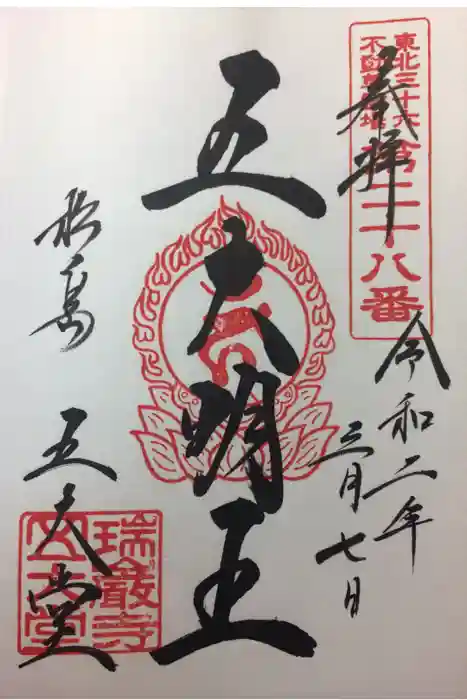 東北三十六
不動尊霊場
第二十八番
奉拝
令和二年
三月七日
五大明王
松島
五大堂
瑞巌寺
五大堂